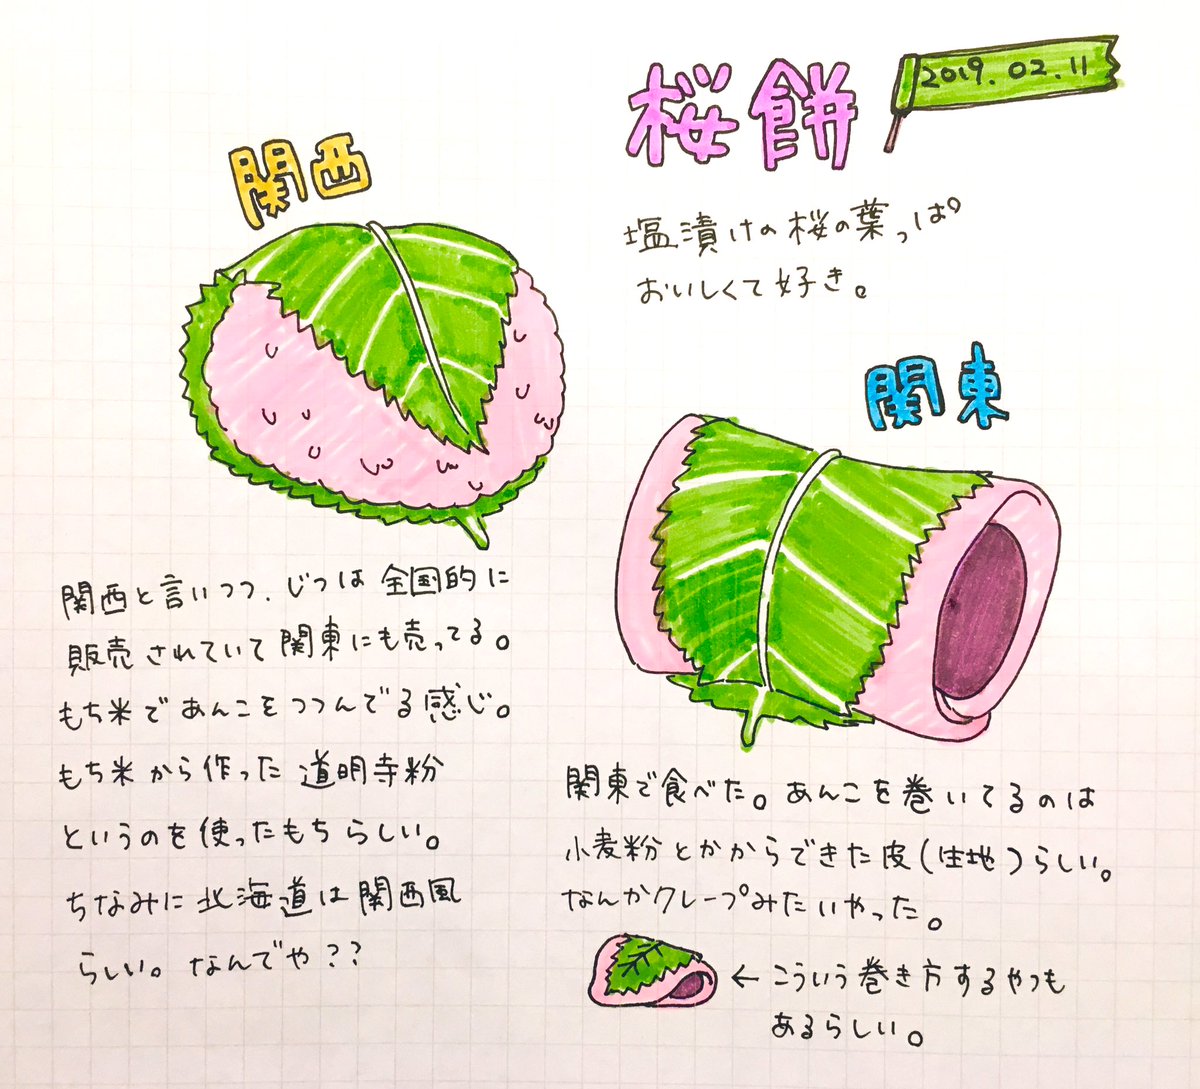 桜餅
2019.02.11
塩漬けの桜の葉っぱ
おいしくて好き。
関西
関西と言いつつ、じつは全国的に
販売されていて関東にも売ってる。
もち米であんこをつつんでる感じ。
もち米から作った道明寺粉
というのを使ったもちらしい。
ちなみに北海道は関西風
らしい。なんでや??
関東
関東で食べた。あんこを巻いてるのは
小麦粉とかからできた皮(生地)らしい。
なんかクレープみたいやった。
←こういう巻き方するやつも
あるらしい。